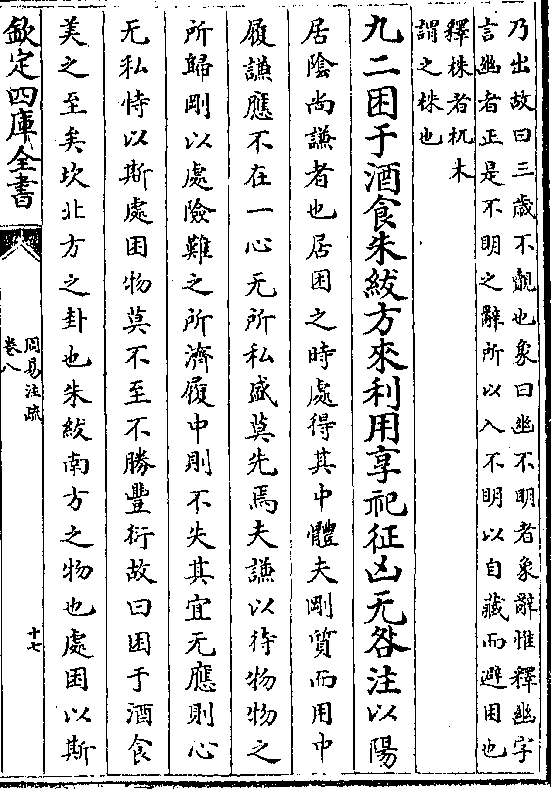 乃出故曰三歲不覿也象曰幽不明者象辭惟釋幽字
言幽者正是不明之辭所以入不明以自藏而避困也
釋株者杌木
謂之株也
九二困于酒食朱紱方來利用享祀征凶无咎注以陽
居陰尚謙者也居困之時處得其中體夫剛質而用中
履謙應不在一心无所私盛莫先焉夫謙以待物物之
所歸剛以處險難之所濟履中則不失其宜无應則心
无私恃以斯處困物莫不至不勝豐衍故曰困于酒食
美之至矣坎北方之卦也朱紱南方之物也處困以斯
欽定四庫全書
周易注疏
卷八
十七